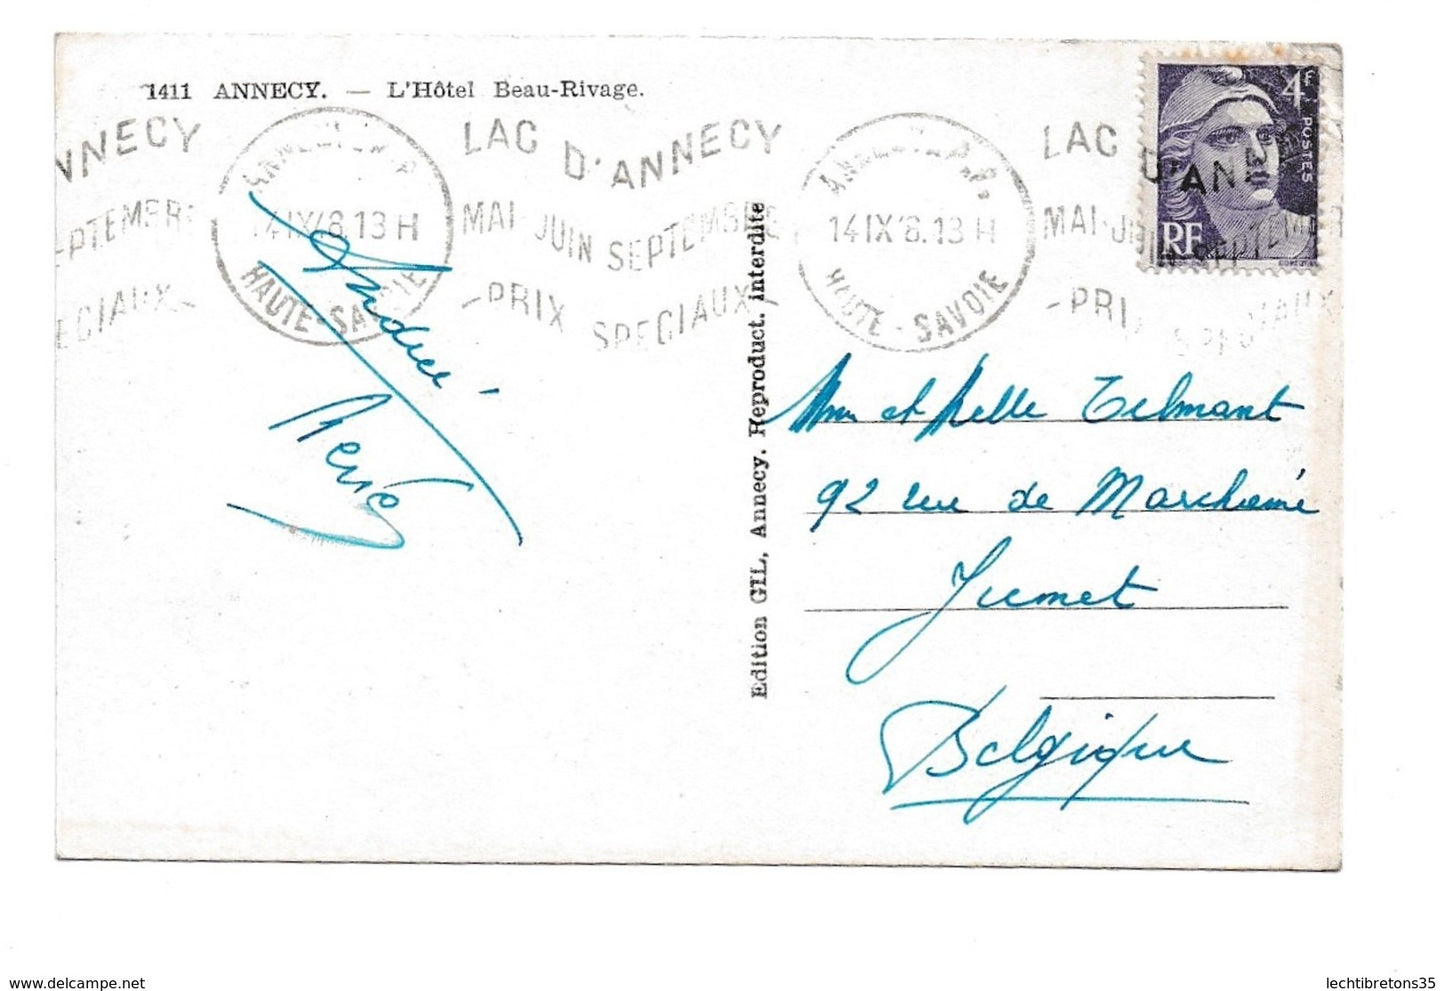 1411 ANNECY. — L'Hôtel Beau-Rivage.
NNECY
EPTEMBRE
ECIAUX-
14 IX 48.13 H
HAUTE-SAVOIE
LAC D'ANNECY
MAI-JUIN SEPTEMBRE
-PRIX SPECIAUX-
14 IX 8.13 H
HAUTE-SAVOIE
LAC D'ANNE
MAI-JUIN SEPTEMBR
-PRI
4F
POSTES
RF
André
René
Edition GIL, Annecy. Reproduct. interdite
Mme et Melle Tilmant
92 rue de
Jumet
Belgique
www.delcampe.net
lechtibretons35